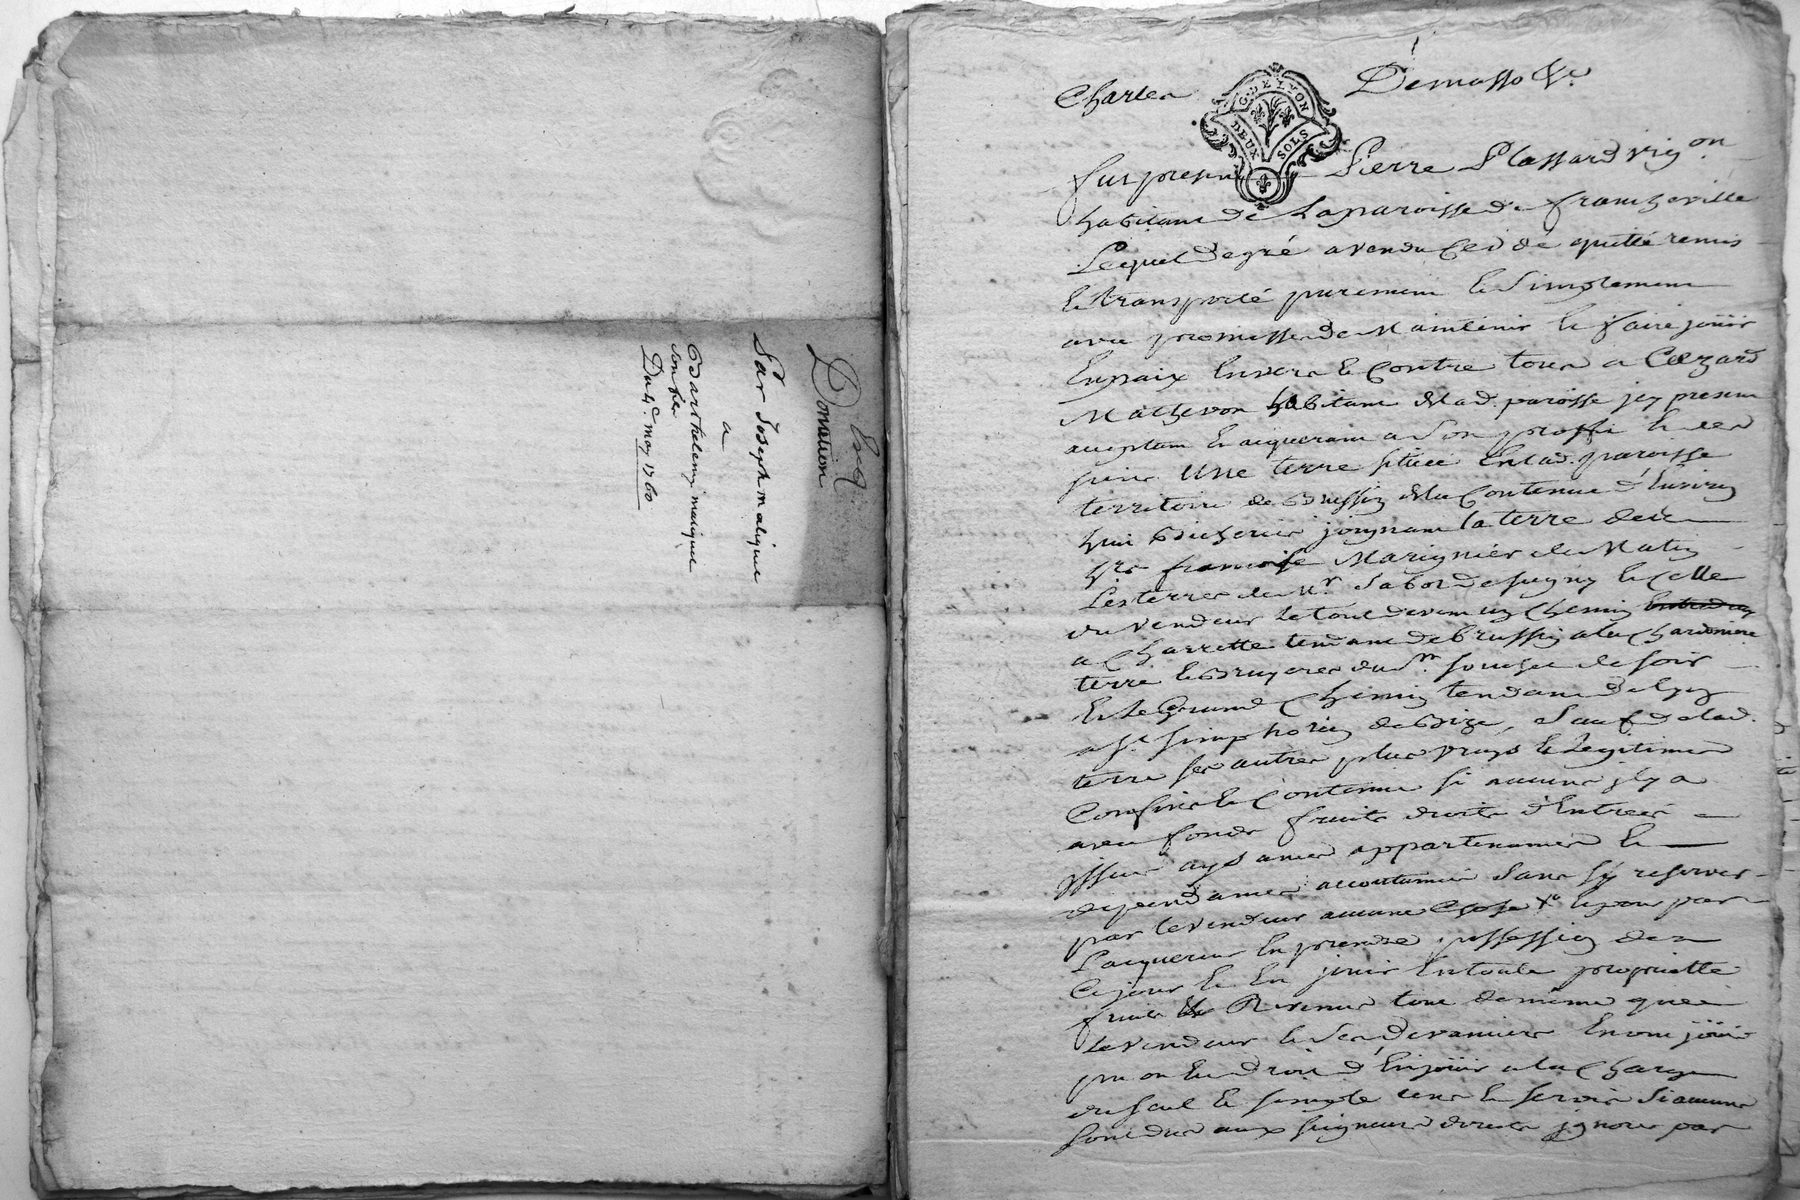 Exq
Donation
Par Joseph maligue
a
Barthelemy maligue
son fils
Du 4e may 1760
Charles
G. DE LYON
DEUX SOLS
Demasso &c
fut present Pierre Plassard vig.on
habitant de La paroisse de francheville
Lequel de gré a vendu Cedé quitté remis
Et transporté purement Et Simplement
avec promesse de Maintenir Et faire jouir
En paix Envers Et Contre tous a Cezard
Mathevon habitant de lad. paroisse jcy present
acceptant Et aquerant a Son proffit Et des
siens Une terre située En lad. paroisse
territoire de Brussin de la Contenue d'Environ
huit Bicherées joignant la terre de
françoise Marignier de Matin
Les terres de Mr Sabot de Sugny Et Celle
du vendeur Le tout de vent un Chemin
a Charrette tendant de brussin a la Chardonniere
terre Et Bruyeres du Sr. de soir
Et Le Grand Chemin tendant de Lyon
a St Simphorien de Bize, Sauf de lad.
terre ses autres plus vrays Et Legitimes
Confins Et Contenue si aucuns jl y a
avec fonds fruits droits d'Entrées
issues aysances appartenances Et
dependances accoutumées Sans s'y reserver
par le vendeur aucune Chose Et pour par
L'acquereur En prendre possession des
Ce jour Et En jouir En toute proprietté
fruits Et Revenus tout de même que
Le vendeur Et Ses Devanciers En ont jouis
pu ou Eu droit d'En jouir a la Charge
du seul Et simple cens Et servis Si aucuns
sont dus aux seigneurs directs jgnorés par